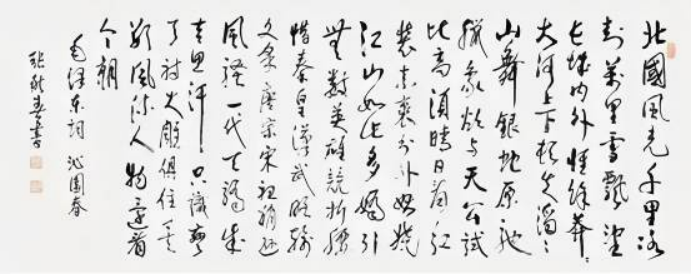 北國風光千里冰
封萬里雪飄望
長城內外惟餘莽〻
大河上下頓失滔〻
山舞銀蛇原馳
臘象欲与天公試
比高須晴日看紅
裝素裹分外妖嬈
江山如此多嬌引
無數英雄競折腰
惜秦皇漢武略輸
文采唐宗宋祖稍遜
風騷一代天驕成
吉思汗只識彎
弓射大雕俱往矣
數風流人物還看
今朝
毛澤東詞 沁園春
張 春書